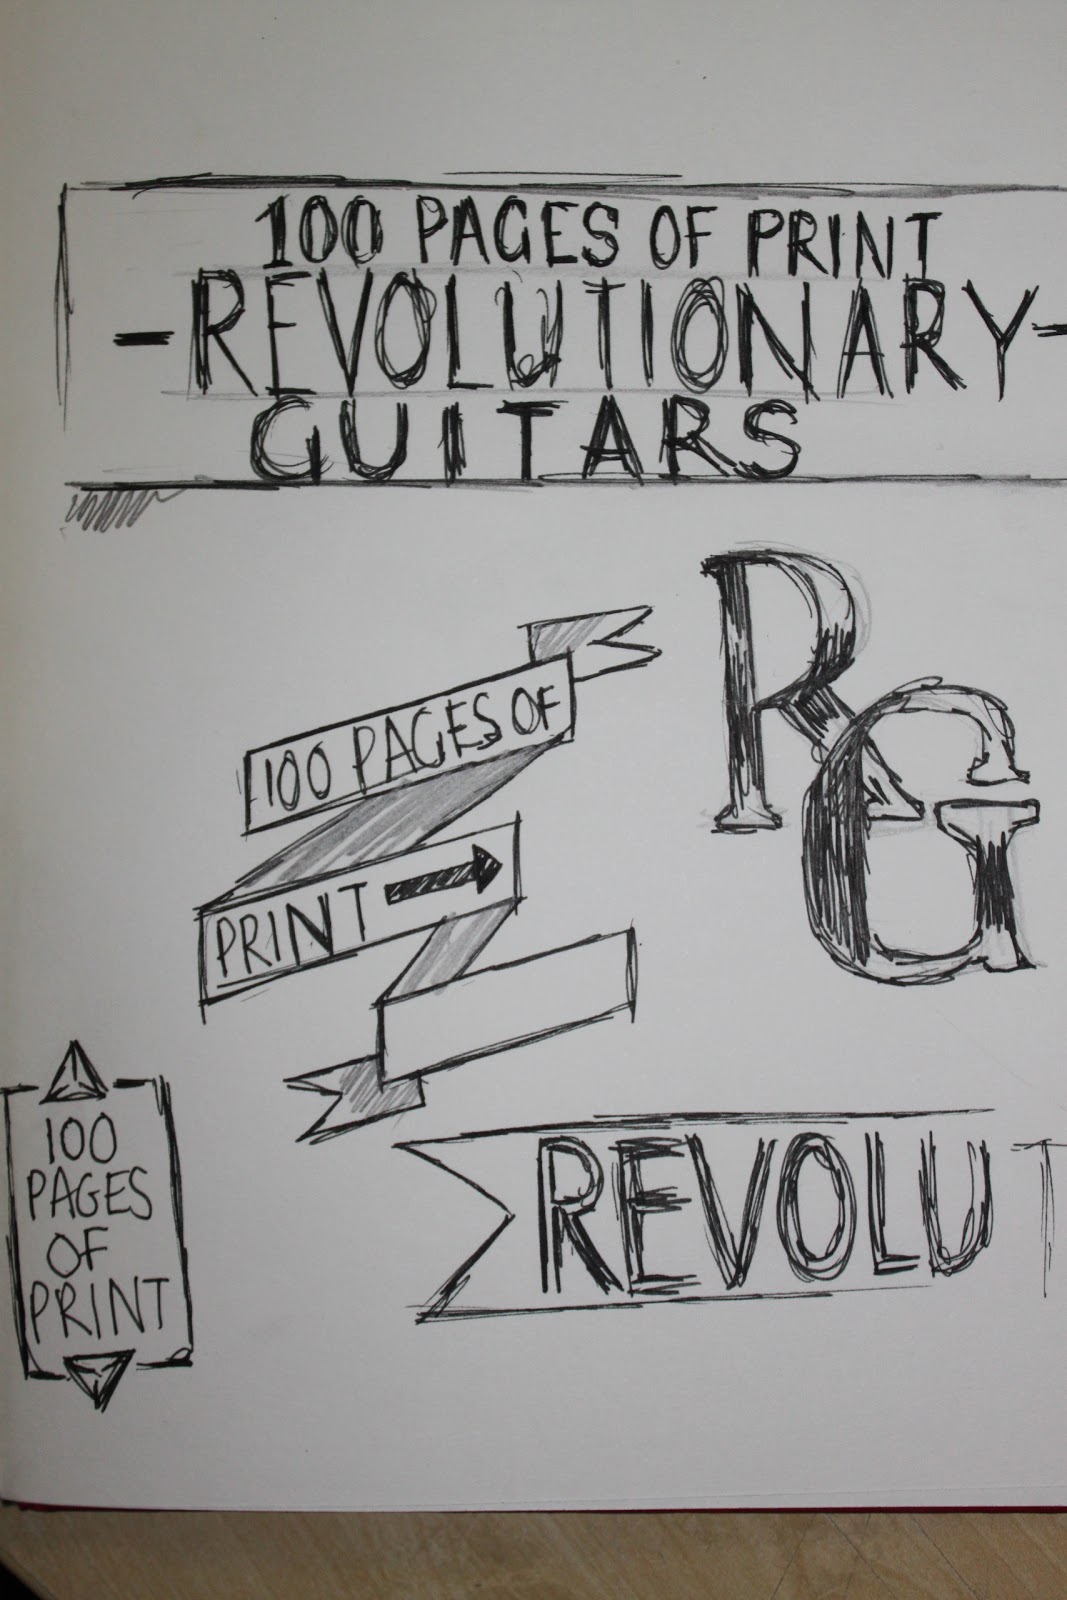 100 PAGES OF PRINT
-REVOLUTIONARY-
GUITARS
RG
100 PAGES OF
PRINT
100
PAGES
OF
PRINT
REVOLUT